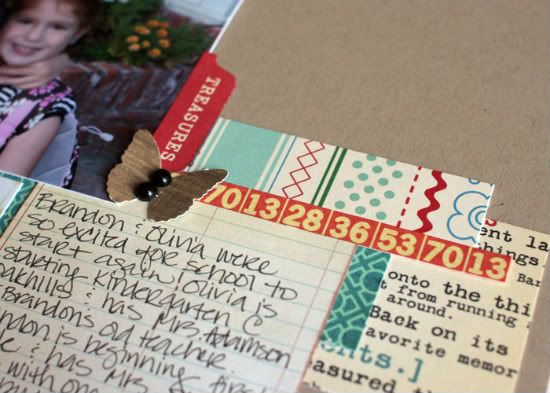 TREASURES
70 13 28 36 53 70 13
Brandon & Olivia were
so excited for school to
start again! Olivia is
starting kindergarten @
oakhills & has Mrs. Adamson
Brandon's old teacher.
ndon is beginning first
e & has Mrs.
with one
ent la
things
Bar
onto the thi
t from running a
around.
Back on its
avorite memor
ents.]
asured t